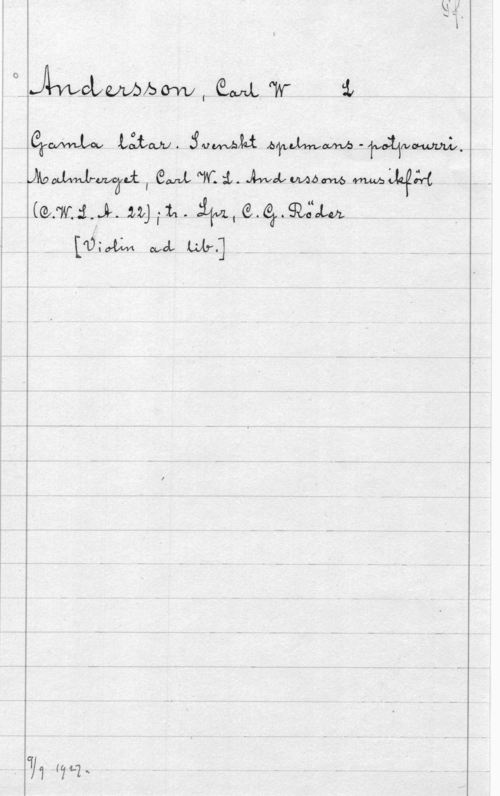 Andersson, Carl W L
Gamla låtar. Svenskt spelmans-potpourri.
Malmberget, Carl W. L. Anderssons musikförl
(C.W.L.A. 22); tr. Lpz, C.G. Röder
[Violin ad lib.]
9/9 1927.